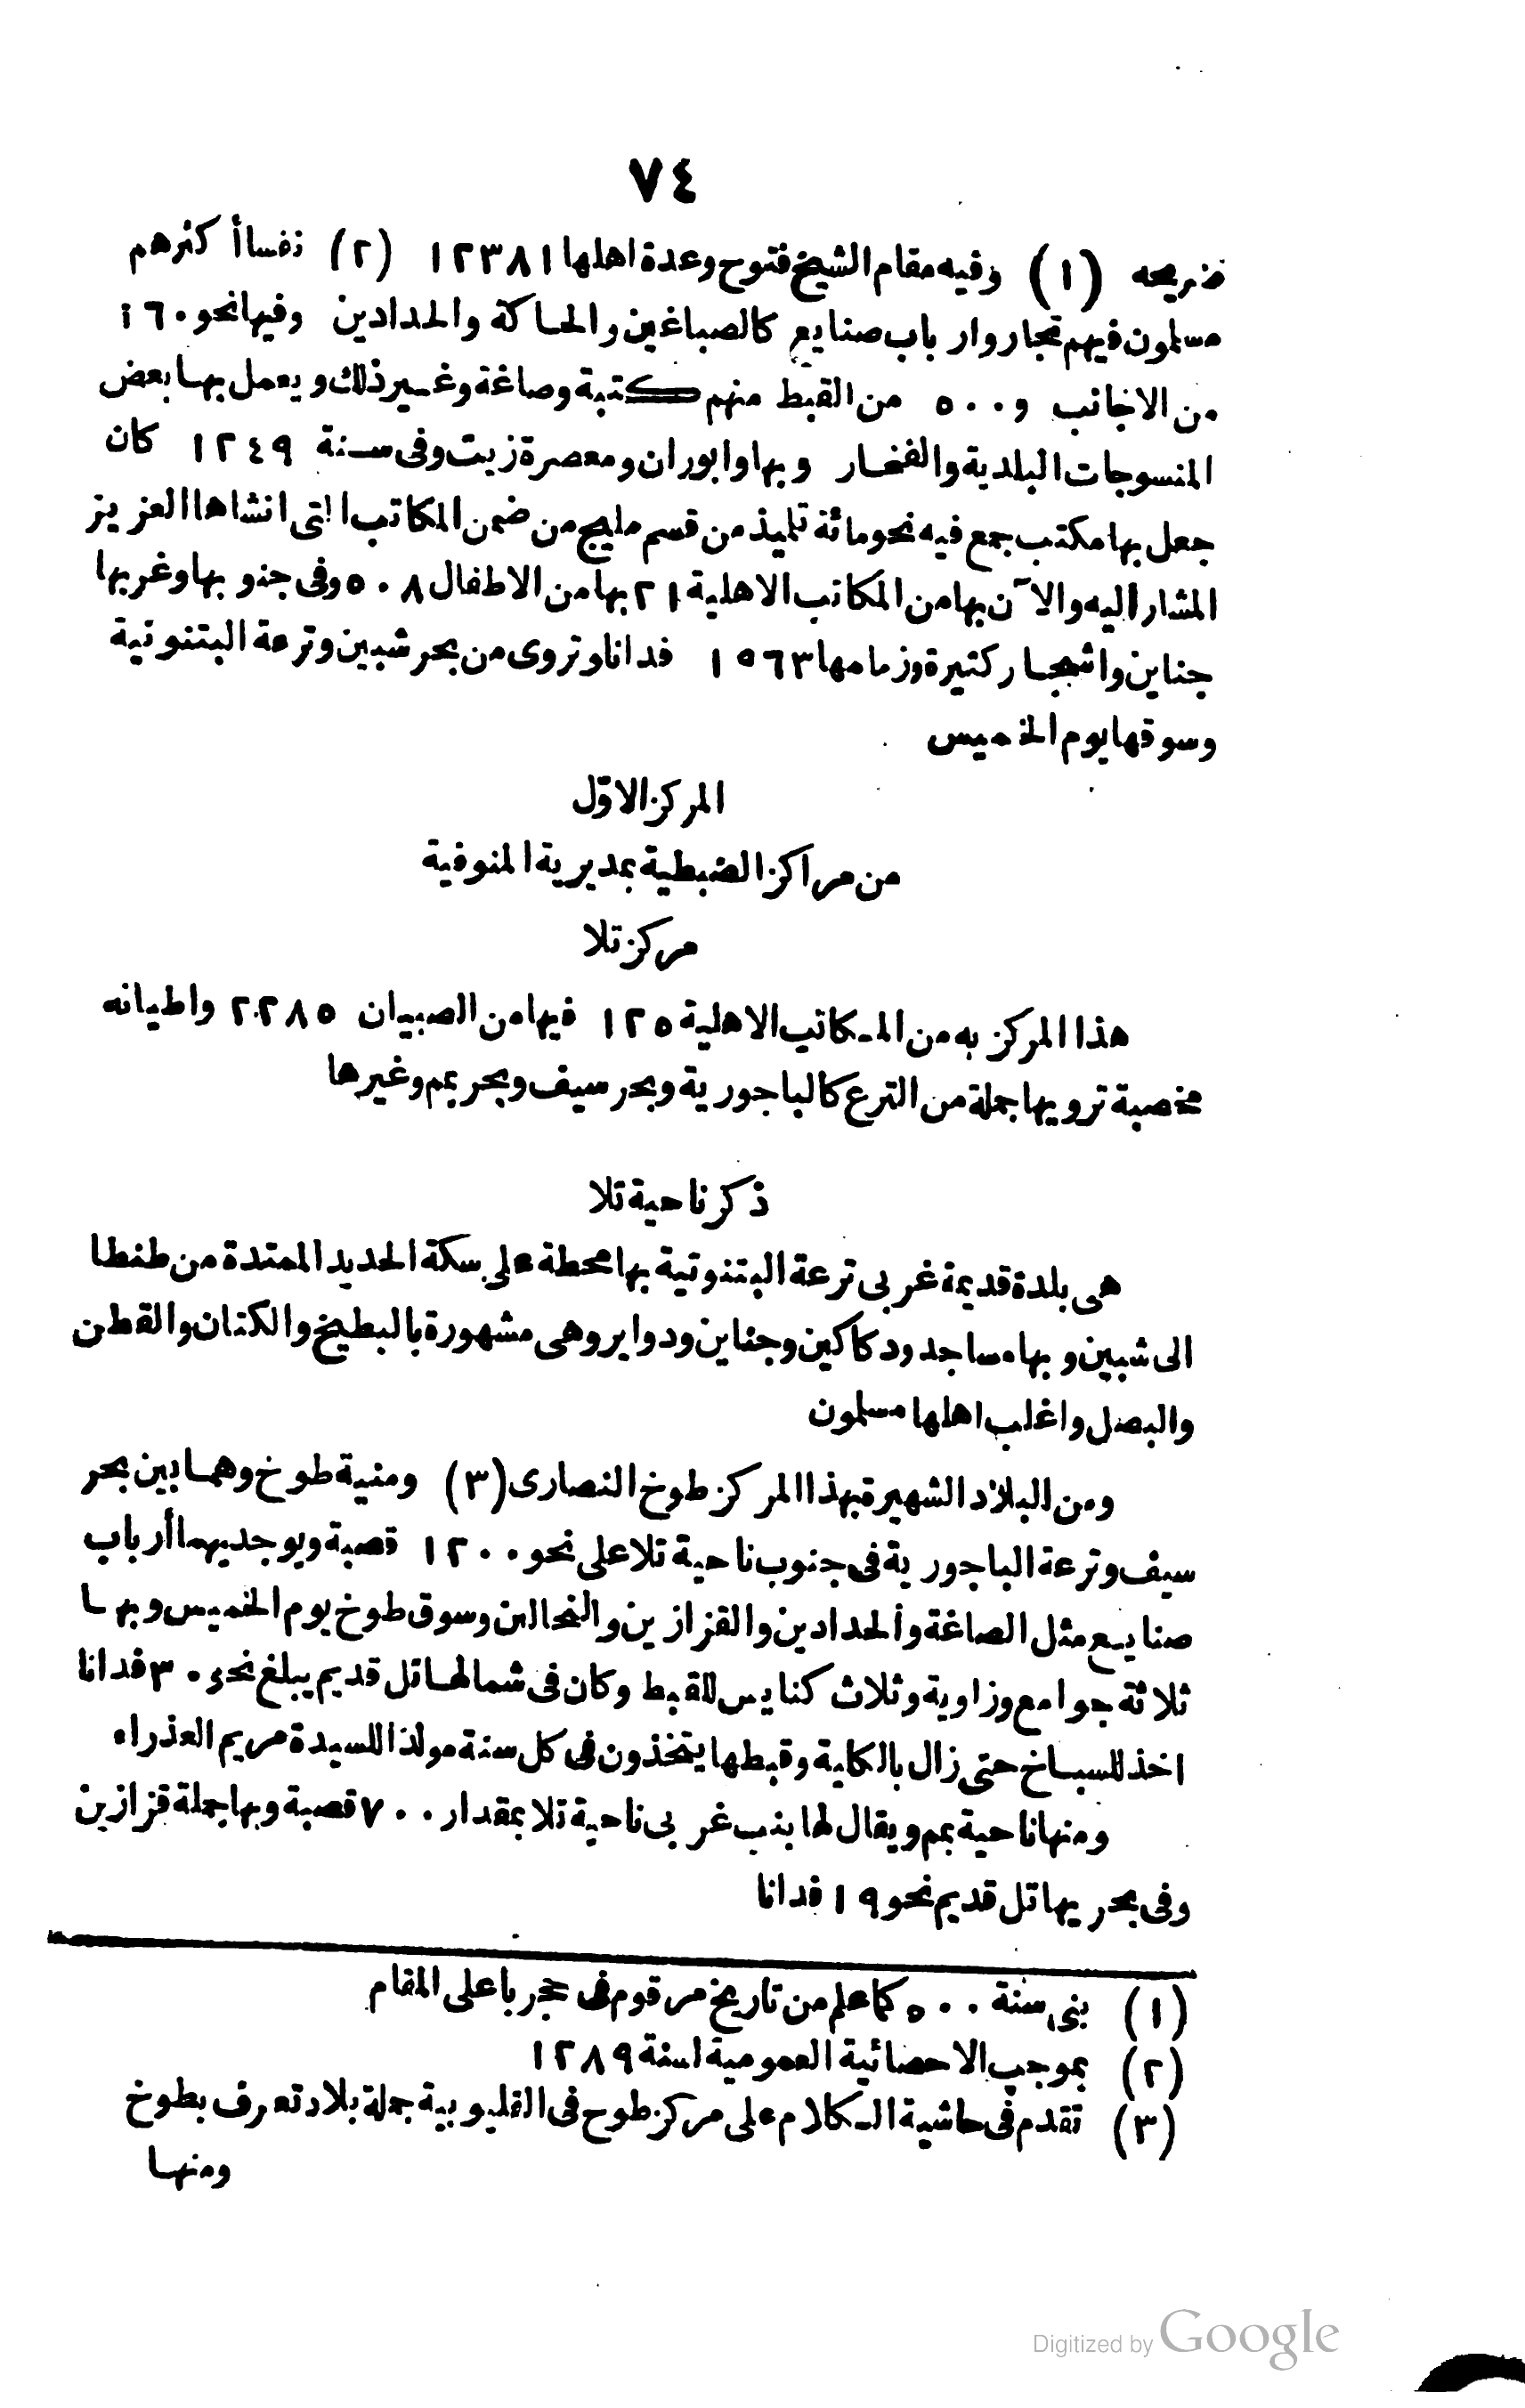 ٧٤
ضريحه (١) وفيه مقام الشيخ فتوح وعدة اهلها ١٢٣٨١ (٢) نفسا أكثرهم
مسلمون فيهم تجار وارباب صنايع كالصباغين والحاكة والحدادين وفيها نحو ١٦٠
من الاجانب و٥٠٠ من القبط منهم كتبة وصاغة وغير ذلك ويعمل بها بعض
المنسوجات البلدية والفخار وبها وابوران ومعصرة زيت وفى سنة ١٢٤٩ كان
جعل بها مكتب جمع فيه نحو مائة تلميذ من قسم مليج من ضمن المكاتب التى انشاها العزيز
المشار اليه والآن بها من المكاتب الاهلية ٢١ بها من الاطفال ٥٠٨ وفى جنوبها وغربها
جناين واشجار كثيرة وزمامها ١٥٦٣ فدانا وتروى من بحر شبين وترعة البتنونية
وسوقها يوم الخميس
المركز الاوّل
من مراكز الضبطية بمديرية المنوفية
مركز تلا
هذا المركز به من المكاتب الاهلية ١٢٥ فيها من الصبيان ٢٢٨٥ واطيانه
مخصبة ترويها جملة من الترع كالباجورية وبحر سيف وبحر بمم وغيرها
ذكر ناحية تلا
هى بلدة قديمة غربى ترعة البتنونية بها محطة على سكة الحديد الممتدة من طنطا
الى شبين وبها مساجد ودكاكين وجناين ودواير وهى مشهورة بالبطيخ والكتان والقطن
والبصل واغلب اهلها مسلمون
ومن البلاد الشهيرة بهذا المركز طوخ النصارى (٣) ومنية طوخ وهما بين بحر
سيف وترعة الباجورية فى جنوب ناحية تلا على نحو ١٢٠٠ قصبة ويوجد بهما أرباب
صنايع مثل الصاغة والحدادين والقزازين والنحالين وسوق طوخ يوم الخميس وبها
ثلاثة جوامع وزاوية وثلاث كنايس للقبط وكان فى شمالها تل قديم يبلغ نحو ٣٠ فدانا
اخذ للسباخ حتى زال بالكلية وقبطها يتخذون فى كل سنة مولدا للسيدة مريم العذراء
ومنها ناحية بمم ويقال لها بنب غربى ناحية تلا بمقدار ٧٠٠ قصبة وبها جملة قزازين
وفى بحريها تل قديم نحو ١٩ فدانا
(١) بنى سنة ٥٠٠ كما علم من تاريخ مرقوم فى حجر باعلى المقام
(٢) بموجب الاحصائية العمومية لسنة ١٢٨٩
(٣) تقدم فى حاشية الكلام على مركز طوخ فى القليوبية جملة بلاد تعرف بطوخ
ومنها
Digitized by Google